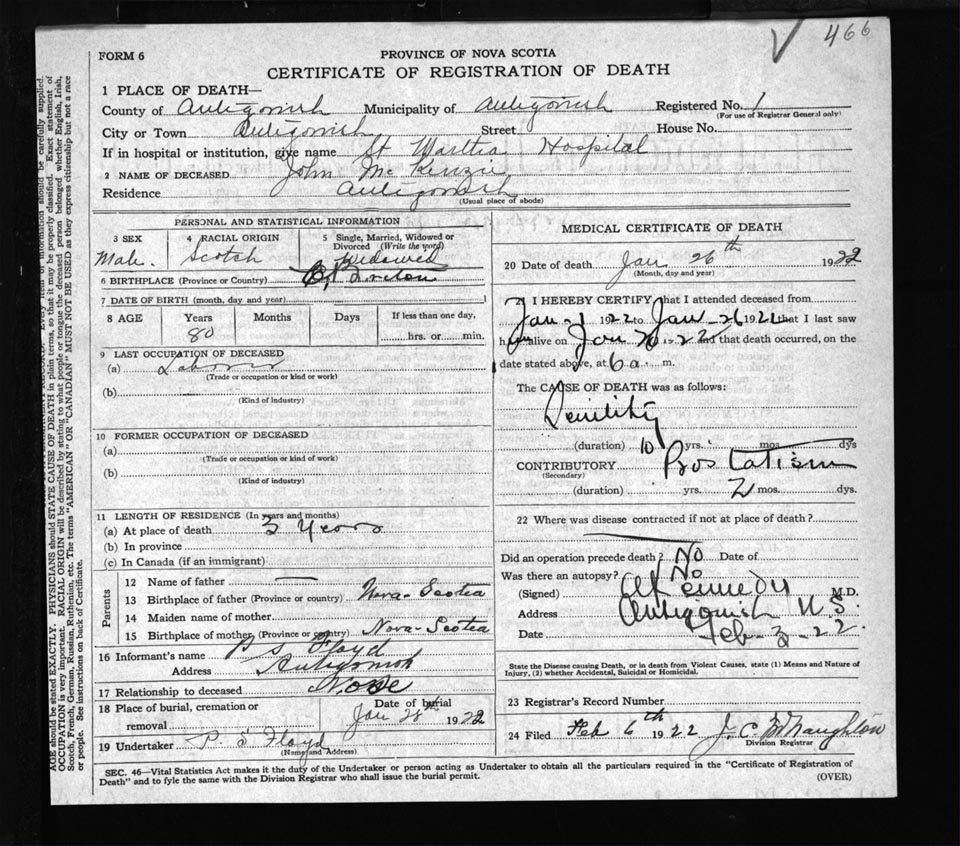 466
FORM 6
PROVINCE OF NOVA SCOTIA
CERTIFICATE OF REGISTRATION OF DEATH
1 PLACE OF DEATH—
County of Antigonish Municipality of Antigonish Registered No. 1
(For use of Registrar General only)
City or Town Antigonish Street House No.
If in hospital or institution, give name St Martha Hospital
2 NAME OF DECEASED John McKenzie
Residence Antigonish
(Usual place of abode)
PERSONAL AND STATISTICAL INFORMATION
3 SEX 4 RACIAL ORIGIN 5 Single, Married, Widowed or Divorced (Write the word)
Male. Scotch Widowed
6 BIRTHPLACE (Province or Country) C. Breton
7 DATE OF BIRTH (month, day and year)
8 AGE Years Months Days If less than one day,
80 hrs. or min.
9 LAST OCCUPATION OF DECEASED
(a) Laborer
(Trade or occupation or kind or work)
(b)
(Kind of industry)
10 FORMER OCCUPATION OF DECEASED
(a)
(Trade or occupation or kind of work)
(b)
(Kind of industry)
11 LENGTH OF RESIDENCE (In years and months)
(a) At place of death 3 Years
(b) In province
(c) In Canada (if an immigrant)
Parents
12 Name of father —
13 Birthplace of father (Province or country) Nova-Scotia
14 Maiden name of mother
15 Birthplace of mother (Province or country) Nova-Scotia
16 Informant's name P S Floyd
Address Antigonish
17 Relationship to deceased None
18 Place of burial, cremation or removal Date of burial
Jan 28th 1922
19 Undertaker P. S Floyd
(Name and Address)
MEDICAL CERTIFICATE OF DEATH
20 Date of death Jan 26th 1922
(Month, day and year)
I HEREBY CERTIFY that I attended deceased from
Jan-1 1922 to Jan-26 1922 that I last saw
h alive on Jan 26 22 and that death occurred, on the
date stated above, at 6 a. m.
The CAUSE OF DEATH was as follows:
Senility
(duration) 10 yrs. mos dys
CONTRIBUTORY Prostatism
(Secondary)
(duration) yrs. 2 mos. dys.
22 Where was disease contracted if not at place of death?
Did an operation precede death? No Date of
Was there an autopsy? No
(Signed) Kennedy M.D.
Address Antigonish N.S.
Date Feb-3-22.
State the Disease causing Death, or in death from Violent Causes, state (1) Means and Nature of
Injury, (2) whether Accidental, Suicidal or Homicidal.
23 Registrar's Record Number
24 Filed Feb 6th 1922 J. C. McNaughton
Division Registrar
SEC. 46—Vital Statistics Act makes it the duty of the Undertaker or person acting as Undertaker to obtain all the particulars required in the "Certificate of Registration of
Death" and to fyle the same with the Division Registrar who shall issue the burial permit.
(OVER)
AGE should be stated EXACTLY. PHYSICIANS should STATE CAUSE OF DEATH in plain terms, so that it may be properly classified. Exact statement of
OCCUPATION is very important. RACIAL ORIGIN will be described by stating to what people or tongue the deceased person belonged whether English, Irish,
Scotch, French, German, Russian, Ruthenian, etc. The terms "AMERICAN" OR "CANADIAN" MUST NOT BE USED as they express citizenship but not a race
or people. See instructions on back of Certificate.